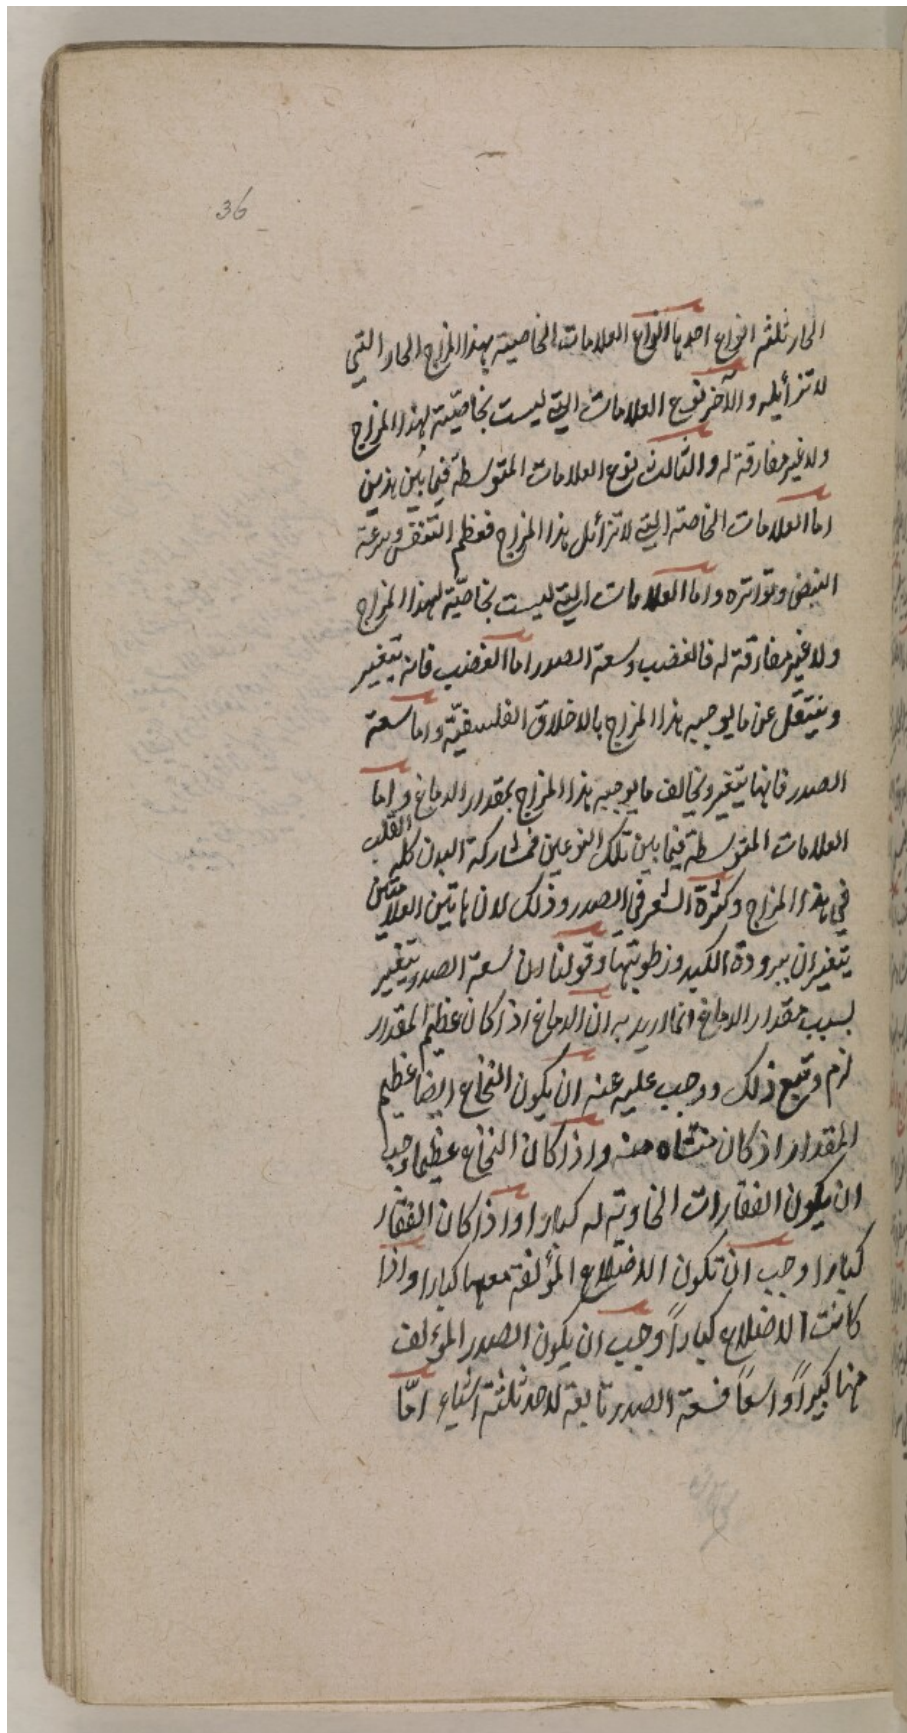 36
الحار ثلثة انواع احدها انواع العلامات الخاصية بهذا المزاج الحار التي
لا تزايله والآخر نوع العلامات التي ليست بخاصّية لهذا المزاج
ولا غير مفارقة له والثالث نوع العلامات المتوسطة فيما بين هذين
اما العلامات الخاصة التي لا تزائل هذا المزاج فعظم التنفس وسرعة
النبض وتواتره واما العلامات التي ليست بخاصّية لهذا المزاج
ولا غير مفارقة له فالغضب وسعة الصدر اما الغضب فانه يتغير
وينتقل عن ما يوجبه هذا المزاج بالاخلاق الفلسفيّة واما سعة
الصدر فانها يتغير ويخالف ما يوجبه هذا المزاج بمقدار الدماغ واما
العلامات المتوسطة فيما بين تلك النوعين فمشاركة البدن كله القلب
في هذا المزاج وكثرة الشعر في الصدر وذلك لان هاتين العلامتين
يتغيران ببرودة الكبد ورطوبتها وقولنا ان سعة الصدر يتغير
بسبب مقدار الدماغ انما اريد به ان الدماغ اذا كان عظيم المقدار
لزم وتبع ذلك ووجب عليه عنه ان يكون النخاع ايضا عظيم
المقدار اذ كان منشاه منه واذا كان النخاع عظيما وجب
ان يكون الفقارات الحاوية له كبارا واذا كان الفقار
كبارا وجب ان تكون الاضلاع المؤلفة معها كبارا واذا
كانت الاضلاع كباراً وجب ان يكون الصدر المؤلف
منها كبيراً واسعاً فسعة الصدر تابعة لاحد ثلثة اشياء امّا